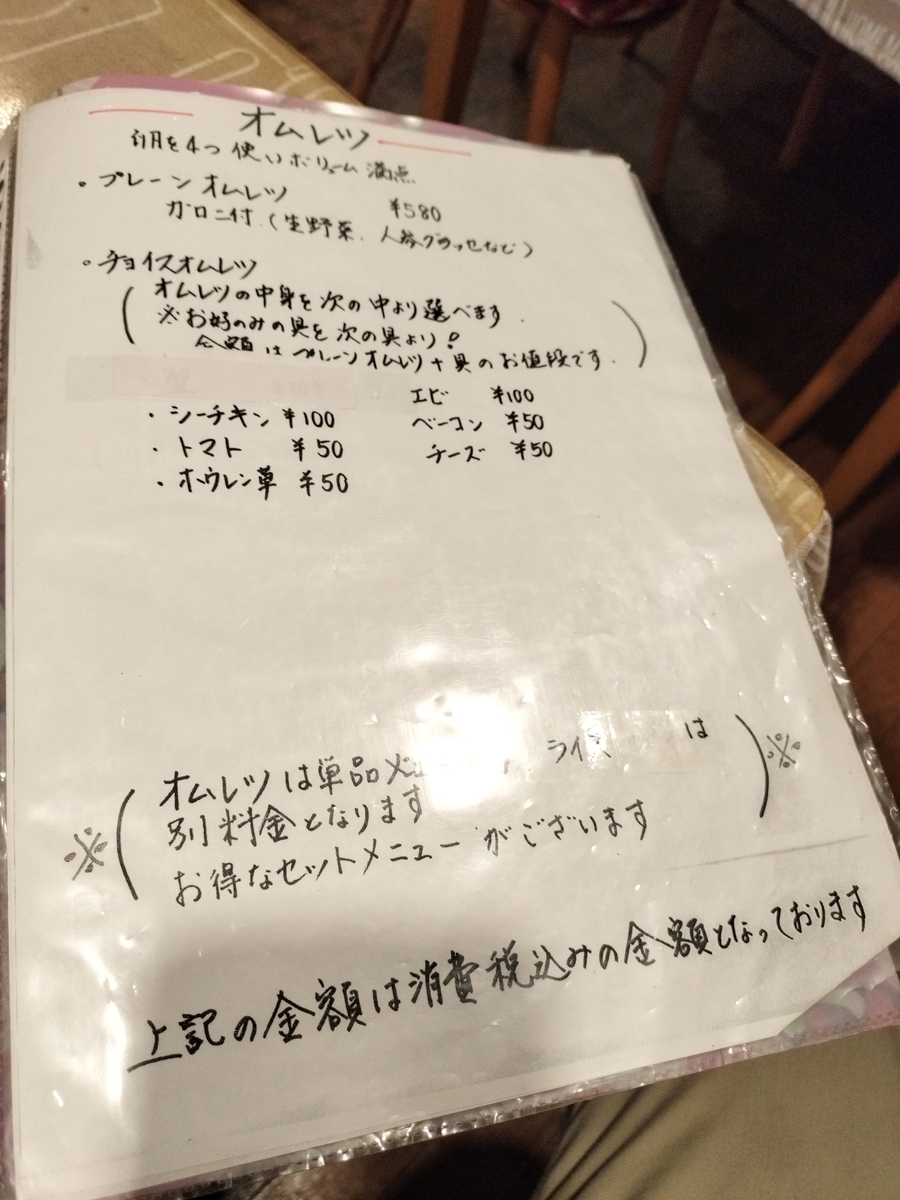 オムレツ
を4つ使いボリューム満点
。プレーンオムレツ ¥580
ガロニ付.(生野菜、人参グラッセなど)
。チョイスオムレツ
(オムレツの中身を次の中より選べます.
※お好のみの具を次の具より!
金額はプレーンオムレツ+具のお値段です.)
エビ ¥100
・シーチキン ¥100 ベーコン ¥50
・トマト ¥50 チーズ ¥50
・ホウレン草 ¥50
※(オムレツは単品 ライス は
別料金となります
お得なセットメニューがございます)※
上記の金額は消費税込みの金額となっております